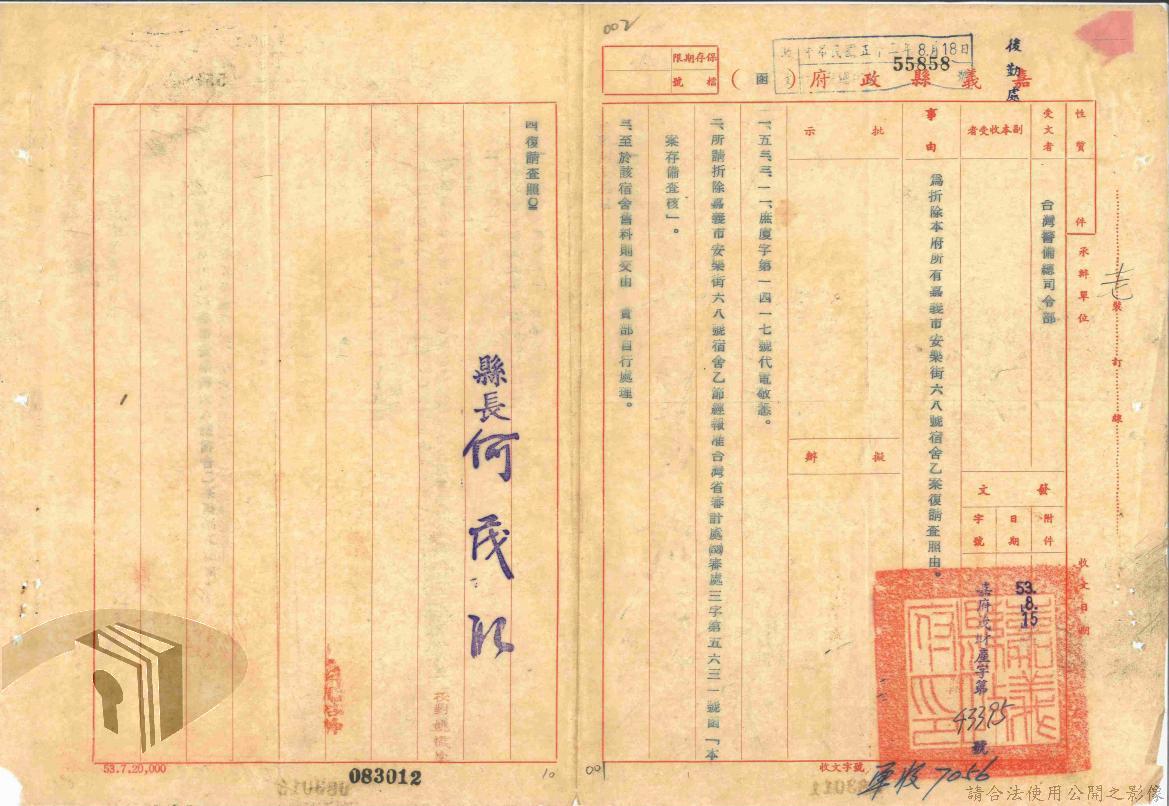 002
後勤處
中華民國五十三年8月18日
55858
保存期限
檔號
嘉義縣政府（函）
性質
件
受文者
台灣警備總司令部
副本收受者
承辦單位
裝訂線
事由
為拆除本府所有嘉義市安樂街六八號宿舍乙案復請查照由。
批示
擬辦
發文
附件
日期
字號
53.8.15
嘉府茂財產字第43395號
收文日期
收文字號
軍收7056
一、五三、三、一一、庶慶字第一四一七號代電敬悉。
二、所請拆除嘉義市安樂街六八號宿舍乙節經報准台灣省審計處審處三字第五六三一號函「本
案存備查核」。
三、至於該宿舍舊料則交由 貴部自行處理。
四、復請查照。
縣長何茂取
53.7.20,000
083012
10
00
請合法使用公開之影像